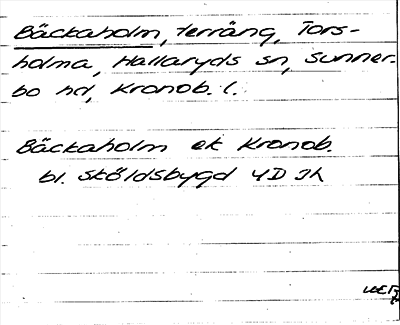 Bäckaholm, terräng, Tors-
holma, Hallaryds sn, Sunner-
bo hd, Kronob. l.
Bäckaholm ek Kronob.
bl. Sköldsbygd 4D 3h